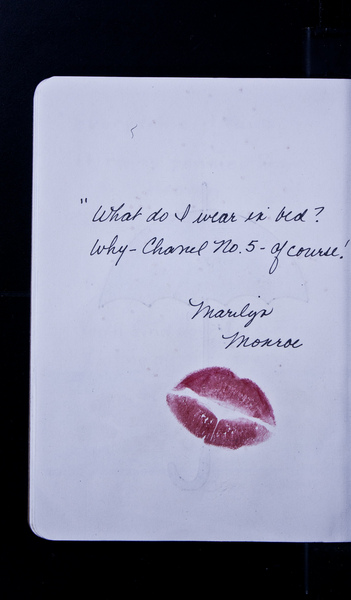 "What do I wear in bed?
Why - Chanel No. 5 - of course!
Marilyn
Monroe